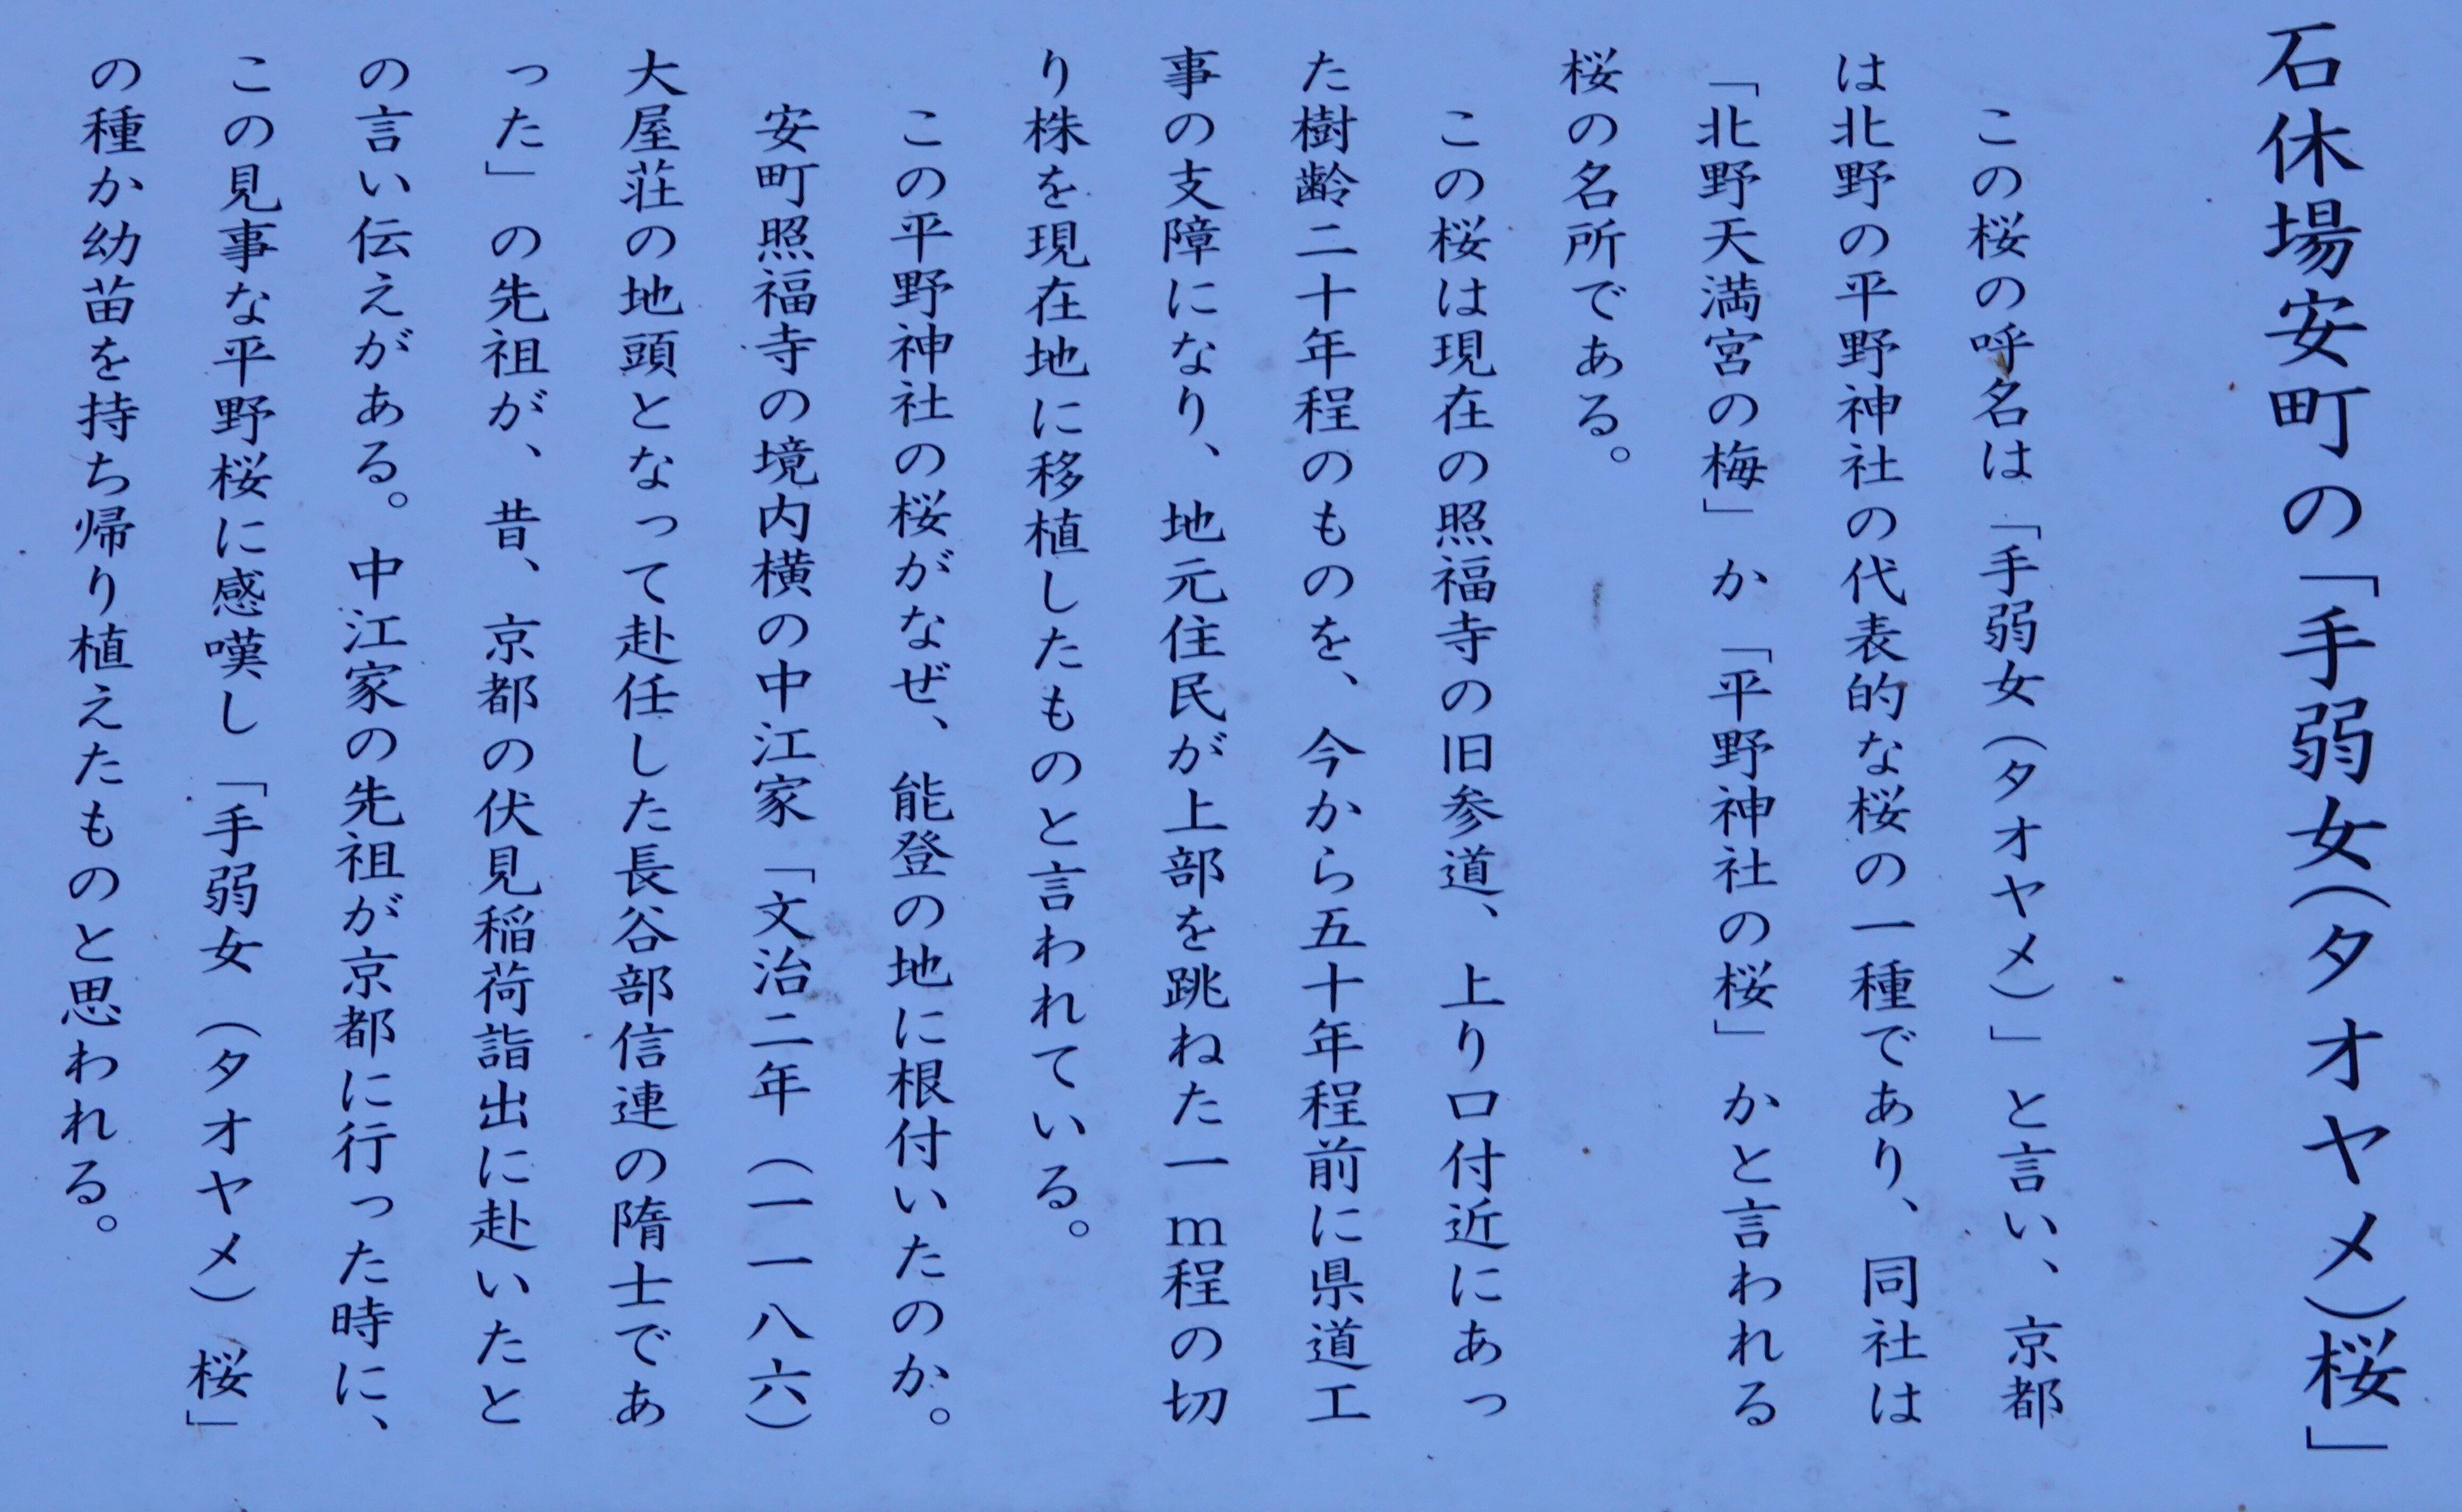 石休場安町の「手弱女(タオヤメ)桜」
この桜の呼名は「手弱女(タオヤメ)」と言い、京都
は北野の平野神社の代表的な桜の一種であり、同社は
「北野天満宮の梅」か「平野神社の桜」かと言われる
桜の名所である。
この桜は現在の照福寺の旧参道、上り口付近にあっ
た樹齢二十年程のものを、今から五十年程前に県道工
事の支障になり、地元住民が上部を跳ねた一m程の切
り株を現在地に移植したものと言われている。
この平野神社の桜がなぜ、能登の地に根付いたのか。
安町照福寺の境内横の中江家「文治二年(一一八六)
大屋荘の地頭となって赴任した長谷部信連の隋士であ
った」の先祖が、昔、京都の伏見稲荷詣出に赴いたと
の言い伝えがある。中江家の先祖が京都に行った時に、
この見事な平野桜に感嘆し「手弱女(タオヤメ)桜」
の種か幼苗を持ち帰り植えたものと思われる。